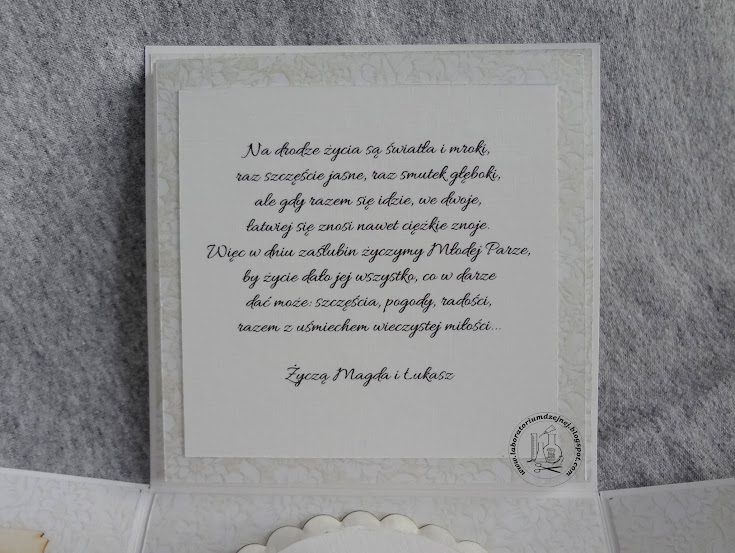 Na drodze życia są światła i mroki,
raz szczęście jasne, raz smutek głęboki,
ale gdy razem się idzie, we dwoje,
łatwiej się znosi nawet ciężkie znoje.
Więc w dniu zaślubin życzymy Młodej Parze,
by życie dało jej wszystko, co w darze
dać może: szczęścia, pogody, radości,
razem z uśmiechem wieczystej miłości...
Życzą Magda i Łukasz
www.laboratoriumdzejnej.blogspot.com